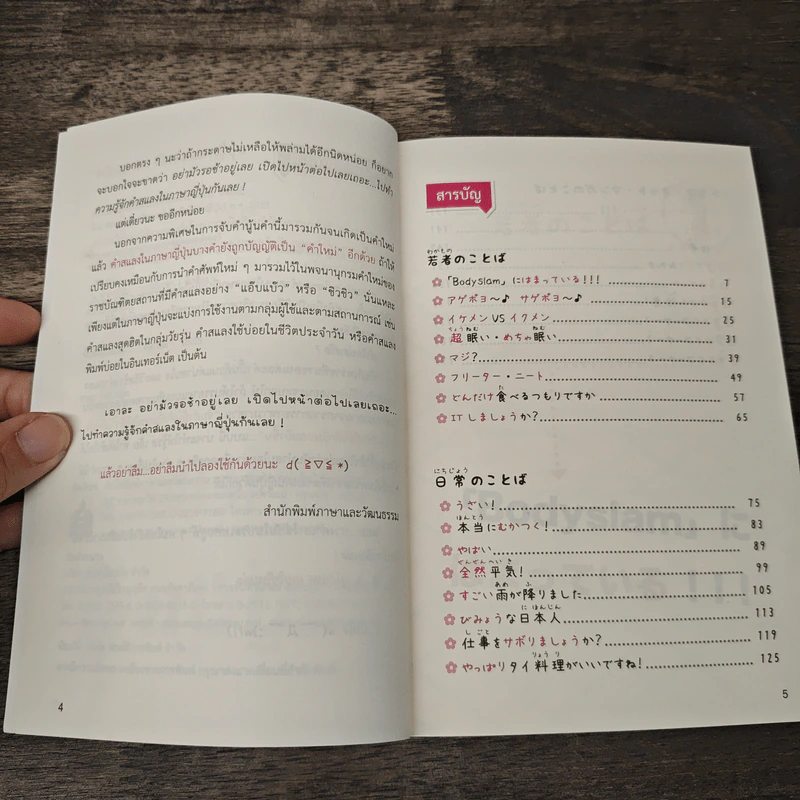 บอกตรง ๆ นะว่าถ้ากระดาษไม่เหลือให้พล่ามได้อีกนิดหน่อย ก็อยาก
จะบอกใจจะขาดว่า อย่ามัวรอช้าอยู่เลย เปิดไปหน้าต่อไปเลยเถอะ...ไปทำ
ความรู้จักคำสแลงในภาษาญี่ปุ่นกันเลย !
แต่เดี๋ยวนะ ขออีกหน่อย
นอกจากความพิเศษในการจับคำนู้นคำนี้มารวมกันจนเกิดเป็นคำใหม่
แล้ว คำสแลงในภาษาญี่ปุ่นบางคำยังถูกบัญญัติเป็น “คำใหม่” อีกด้วย ถ้าให้
เปรียบคงเหมือนกับการนำคำศัพท์ใหม่ ๆ มารวมไว้ในพจนานุกรมคำใหม่ของ
ราชบัณฑิตยสถานที่มีคำสแลงอย่าง “แอ๊บแบ๊ว” หรือ “ชิวชิว” นั่นแหละ
เพียงแต่ในภาษาญี่ปุ่นจะแบ่งการใช้งานตามกลุ่มผู้ใช้และตามสถานการณ์ เช่น
คำสแลงสุดฮิตในกลุ่มวัยรุ่น คำสแลงใช้บ่อยในชีวิตประจำวัน หรือคำสแลง
พิมพ์บ่อยในอินเทอร์เน็ต เป็นต้น
เอาละ อย่ามัวรอช้าอยู่เลย เปิดไปหน้าต่อไปเลยเถอะ...
ไปทำความรู้จักคำสแลงในภาษาญี่ปุ่นกันเลย !
แล้วอย่าลืม...อย่าลืมนำไปลองใช้กันด้วยนะ d(≧▽≦*)
สำนักพิมพ์ภาษาและวัฒนธรรม
4
สารบัญ
わかもの
若者のことば
「Bodyslam」にはまっている!!! 7
アゲポヨ〜♪ サゲポヨ〜♪ 15
イケメン VS イクメン 25
ちょうねむ ねむ
超眠い・めちゃ眠い 31
マジ? 39
フリーター・ニート 49
た
どんだけ食べるつもりですか 57
IT しましょうか? 65
にちじょう
日常のことば
うざい! 75
ほんとう
本当にむかつく! 83
やばい 89
ぜんぜんへいき
全然平気! 99
あめ ふ
すごい雨が降りました 105
に ほんじん
びみょうな日本人 113
し ごと
仕事をサボりましょうか? 119
りょうり
やっぱりタイ料理がいいですね! 125
5